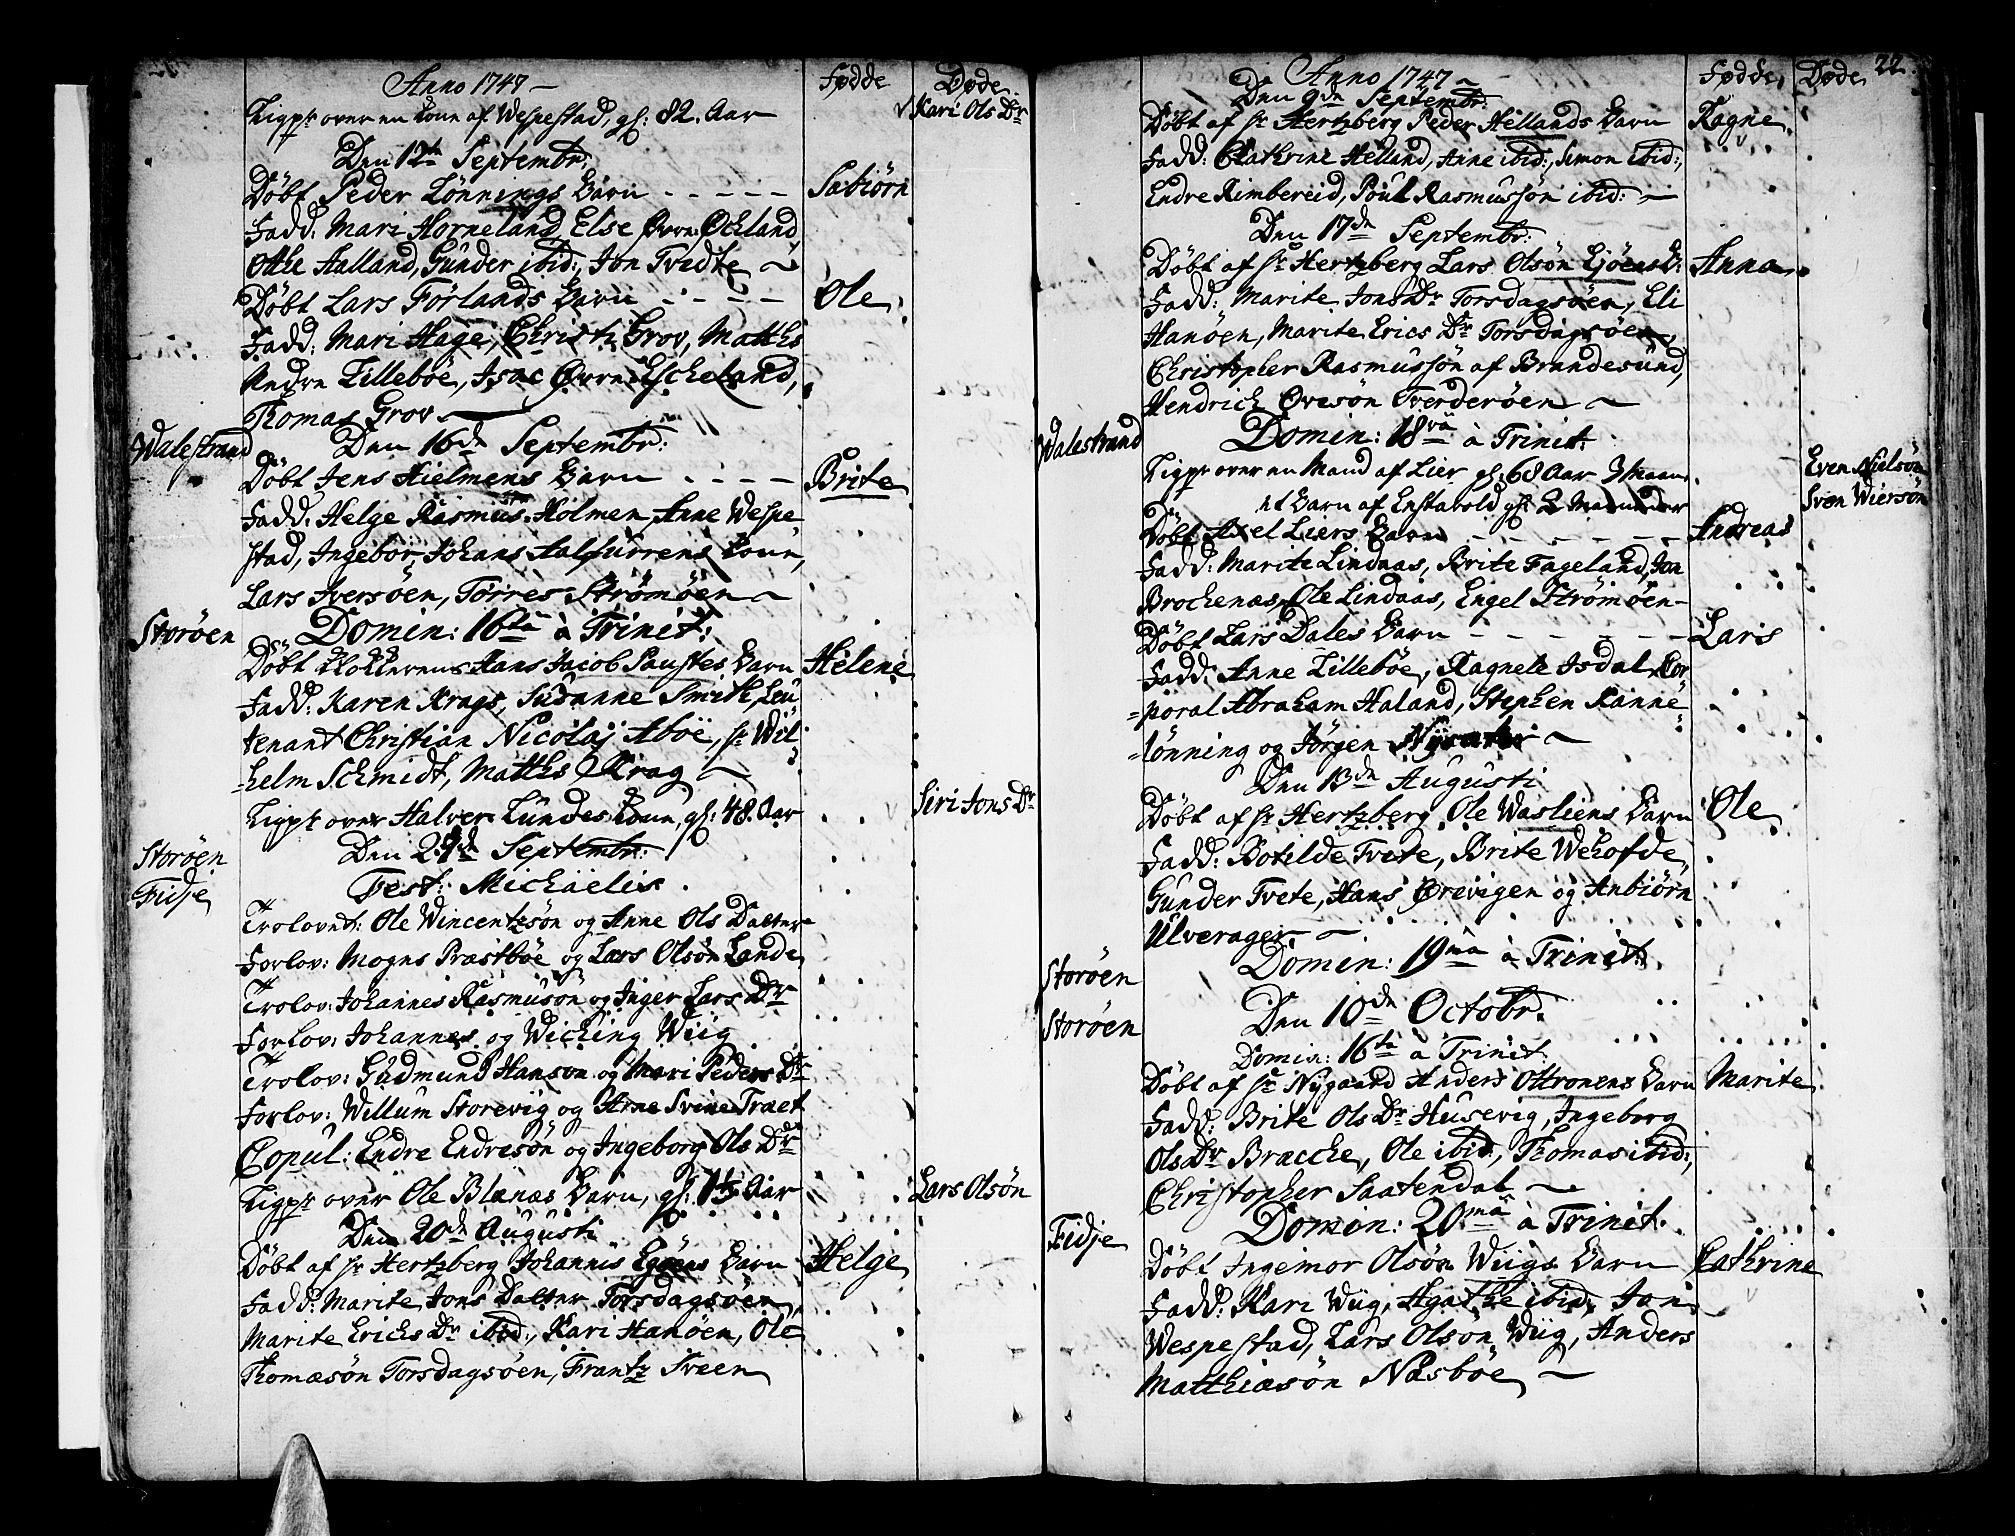 Anno 1747
Fødde
Døde
Ligpr over en Kone af Wespestad, gl: 82. Aar
Kari Ols Dr
Den 12te Septembr:
Døbt Peder Lønnings Barn
Sabiørn
Fadd: Mari Horneland, Else Øvre Økland,
Otte Halland, Gunder ibid:, Jon Tvedte
Døbt Lars Førlands Barn
Ole
Fadd: Mari Hage, Christi Grov, Matths
Andrn Lillebøe, Isac Øvrn Escheland,
Thomas Grov
Walestrand
Den 16de Septembr:
Døbt Jens Hielmens Barn
Brite
Fadd: Helge Rasmus Holmen, Anne Wespe
stad, Ingebor Johans Aalfurrens Kone,
Lars Iversøen, Torres Strømøen
Storøen
Domin: 16ta à Trinit:
Døbt Klokkerens Hans Jacob Saustes Barn
Helene
Fadd: Karen Krags, Susanne Smith, Leu
tenant Christian Nicolaj Abøe, sr Wil
helm Schmidt, Matths Krag
Ligpr over Halver Lundes Kone, gl: 48. Aar
Siri Jons Dr
Storøen
Den 29de Septembr:
Fidje
Fest: Michaëlis.
Trolovet: Ole Wincentzsøn og Anne Ols Datter
Forlov: Mogns Præstbøe og Lars Olsøn Lande
Trolov: Johannes Rasmusøn og Inger Lars Dr
Forlov: Johannes og Wiching Wiig
Trolov: Gudmund Hanson og Mari Peders Dr
Forlov: Willum Storevig og Arne Svine Traet
Copul: Endre Endresøn og Ingeborg Ols Dr
Ligpr over Ole Blænæs Barn, gl: 1½ Aar
Lars Olsøn
Den 20de Augusti
Døbt af sr Hertzberg Johannis Egøens Barn
Helge
Fadd: Marite Jons Datter Torsdagsøen,
Marite Erichs Dr ibid:, Kari Hanøen, Ole
Thomæsøn Torsdagsøen, Frantz Sveen
22.
Anno 1747
Fødde
Døde
Den 9de Septembr:
Døbt af sr Hertzberg Peder Hellands Barn
Ragne
Fadd: Cathrine Helland, Anne ibid:, Simon ibid:,
Endre Rimbereid, Poul Rasmussøn ibid:
Den 17de Septembr:
Døbt af sr Hertzberg Lars Olsøn Ejøens B:
Anna
Fadd: Marite Jons Dr Torsdagsøen, Eli
Hanøen, Marite Erics Dr Torsdagsøen,
Christopher Rasmussøn af Brandesund,
Hendrich Ovesøn Tverderøen
Walestrand
Domin: 18va à Trinit:
Ligpr over en Mand af Lier gl: 68 Aar 3 Maan:
Even Nielsøn
et Barn af Enstabold gl: 2 Maaneder
Sven Wiersøn
Døbt Axel Liers Barn
Andreas
Fadd: Marite Lindaas, Brite Fageland, Jon
Brochenæs, Ole Lindaas, Engel Strømøen
Døbt Lars Dales Barn
Laris
Fadd: Anne Lillebøe, Ragnele Isdal, Cor
poral Abraham Haland, Stephen Ranne
lønning og Jørgen
Den 13de Augusti
Døbt af sr Hertzberg Ole Wasliens Barn
Ole
Fadd: Botilde Tvete, Brite Wehofde,
Gunder Tvete, Hans Ørevigen og Anbiørn
Ulverager
Storøen
Domin: 19na à Trinit:
Storøen
Den 10de Octobr.
Domin: 16ta à Trinit:
Døbt af sr Nygaard Anders Ottronens Barn
Marite
Fadd: Brite Ols Dr Husevig, Ingeborg
Ols Dr Bracche, Ole ibid:, Thomas ibid:,
Christopher Saatendal
Fidje
Domin: 20ma à Trinit:
Døbt Ingemor Olsøn Wiigs Barn
Cathrine
Fadd: Kari Wiig, Agathe ibid: Jon
Wespestad, Lars Olsøn Wiig, Anders
Matthiæsøn Næsbøe